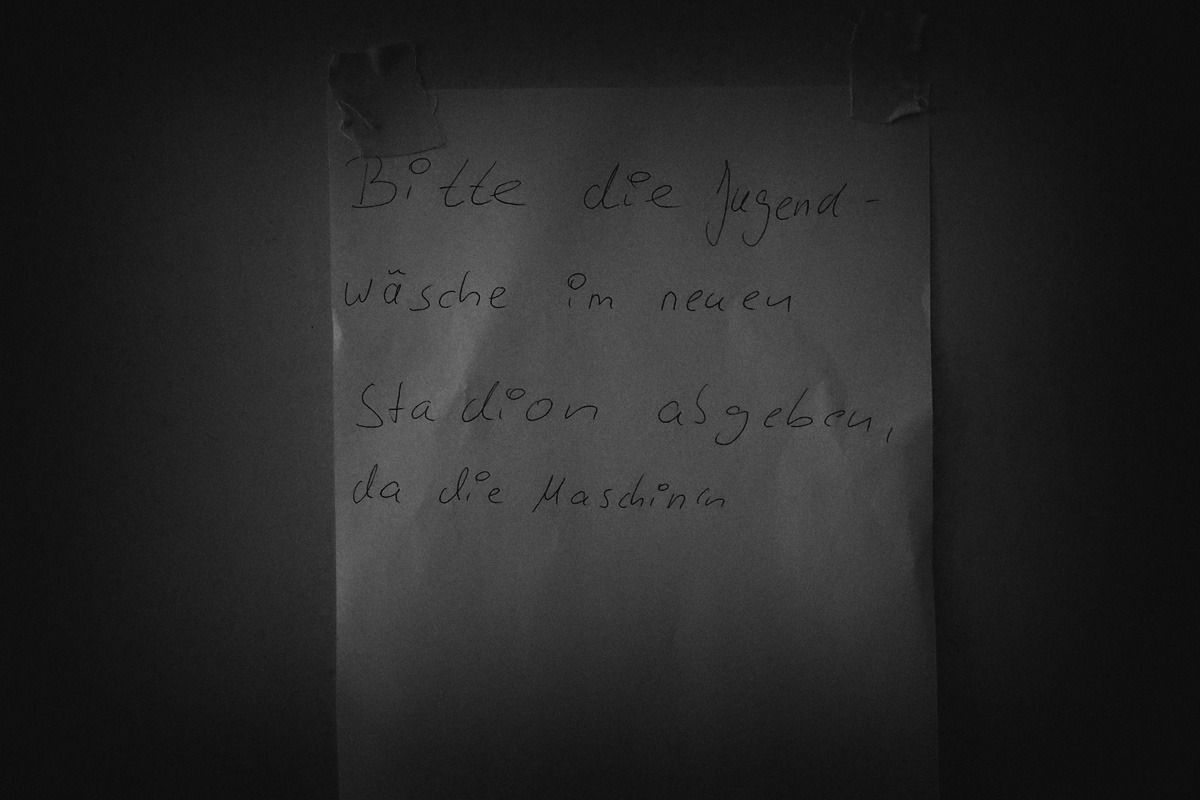 Bitte die Jugend-
wäsche im neuen
Stadion abgeben,
da die Maschinen